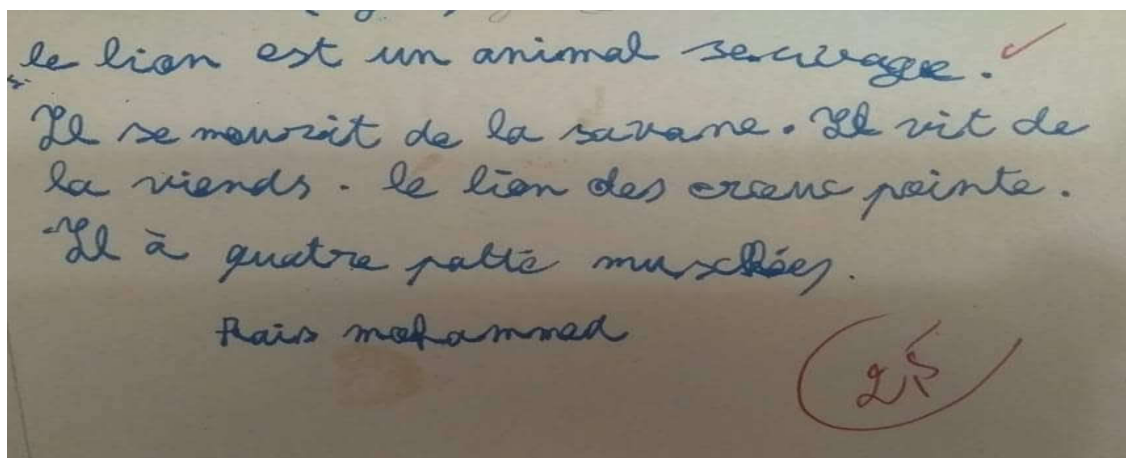 le lion est un animal seuvage.
Il se mourait de la savane. Il vit de
la viends. le lion des crœuc pointe.
Il à quatre patté musclées.
Rais mohammed
25